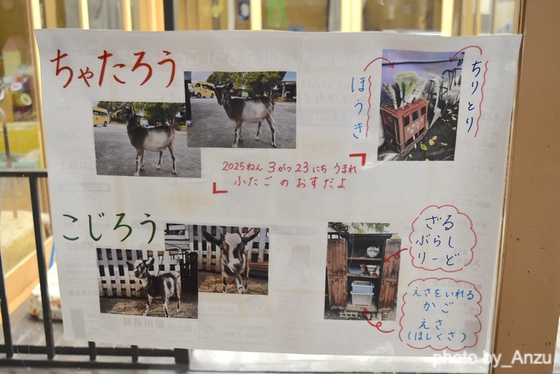 ちゃたろう
ほうき
ちりとり
2025ねん 3がつ23にち うまれ
ふたごのおすだよ
こじろう
ざる
ぶらし
りーど
えさをいれる
かご
えさ
(ほしくさ)
photo by_Anzu